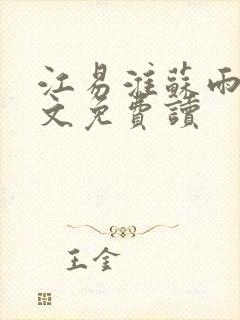 江易淮蘇雨
文免費讀
王金